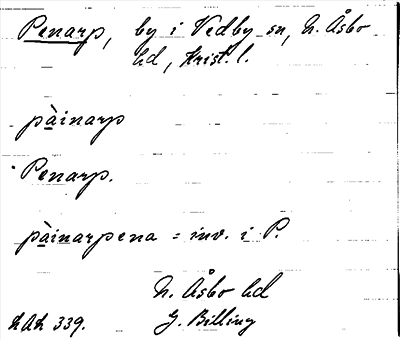 Penarp, by i Vedby sn, N. Åsbo
hd, Krist. l.
pàinarp
Penarp.
pàinarpena = inv. i P.
N. Åsbo hd
LAL 339. G. Billing